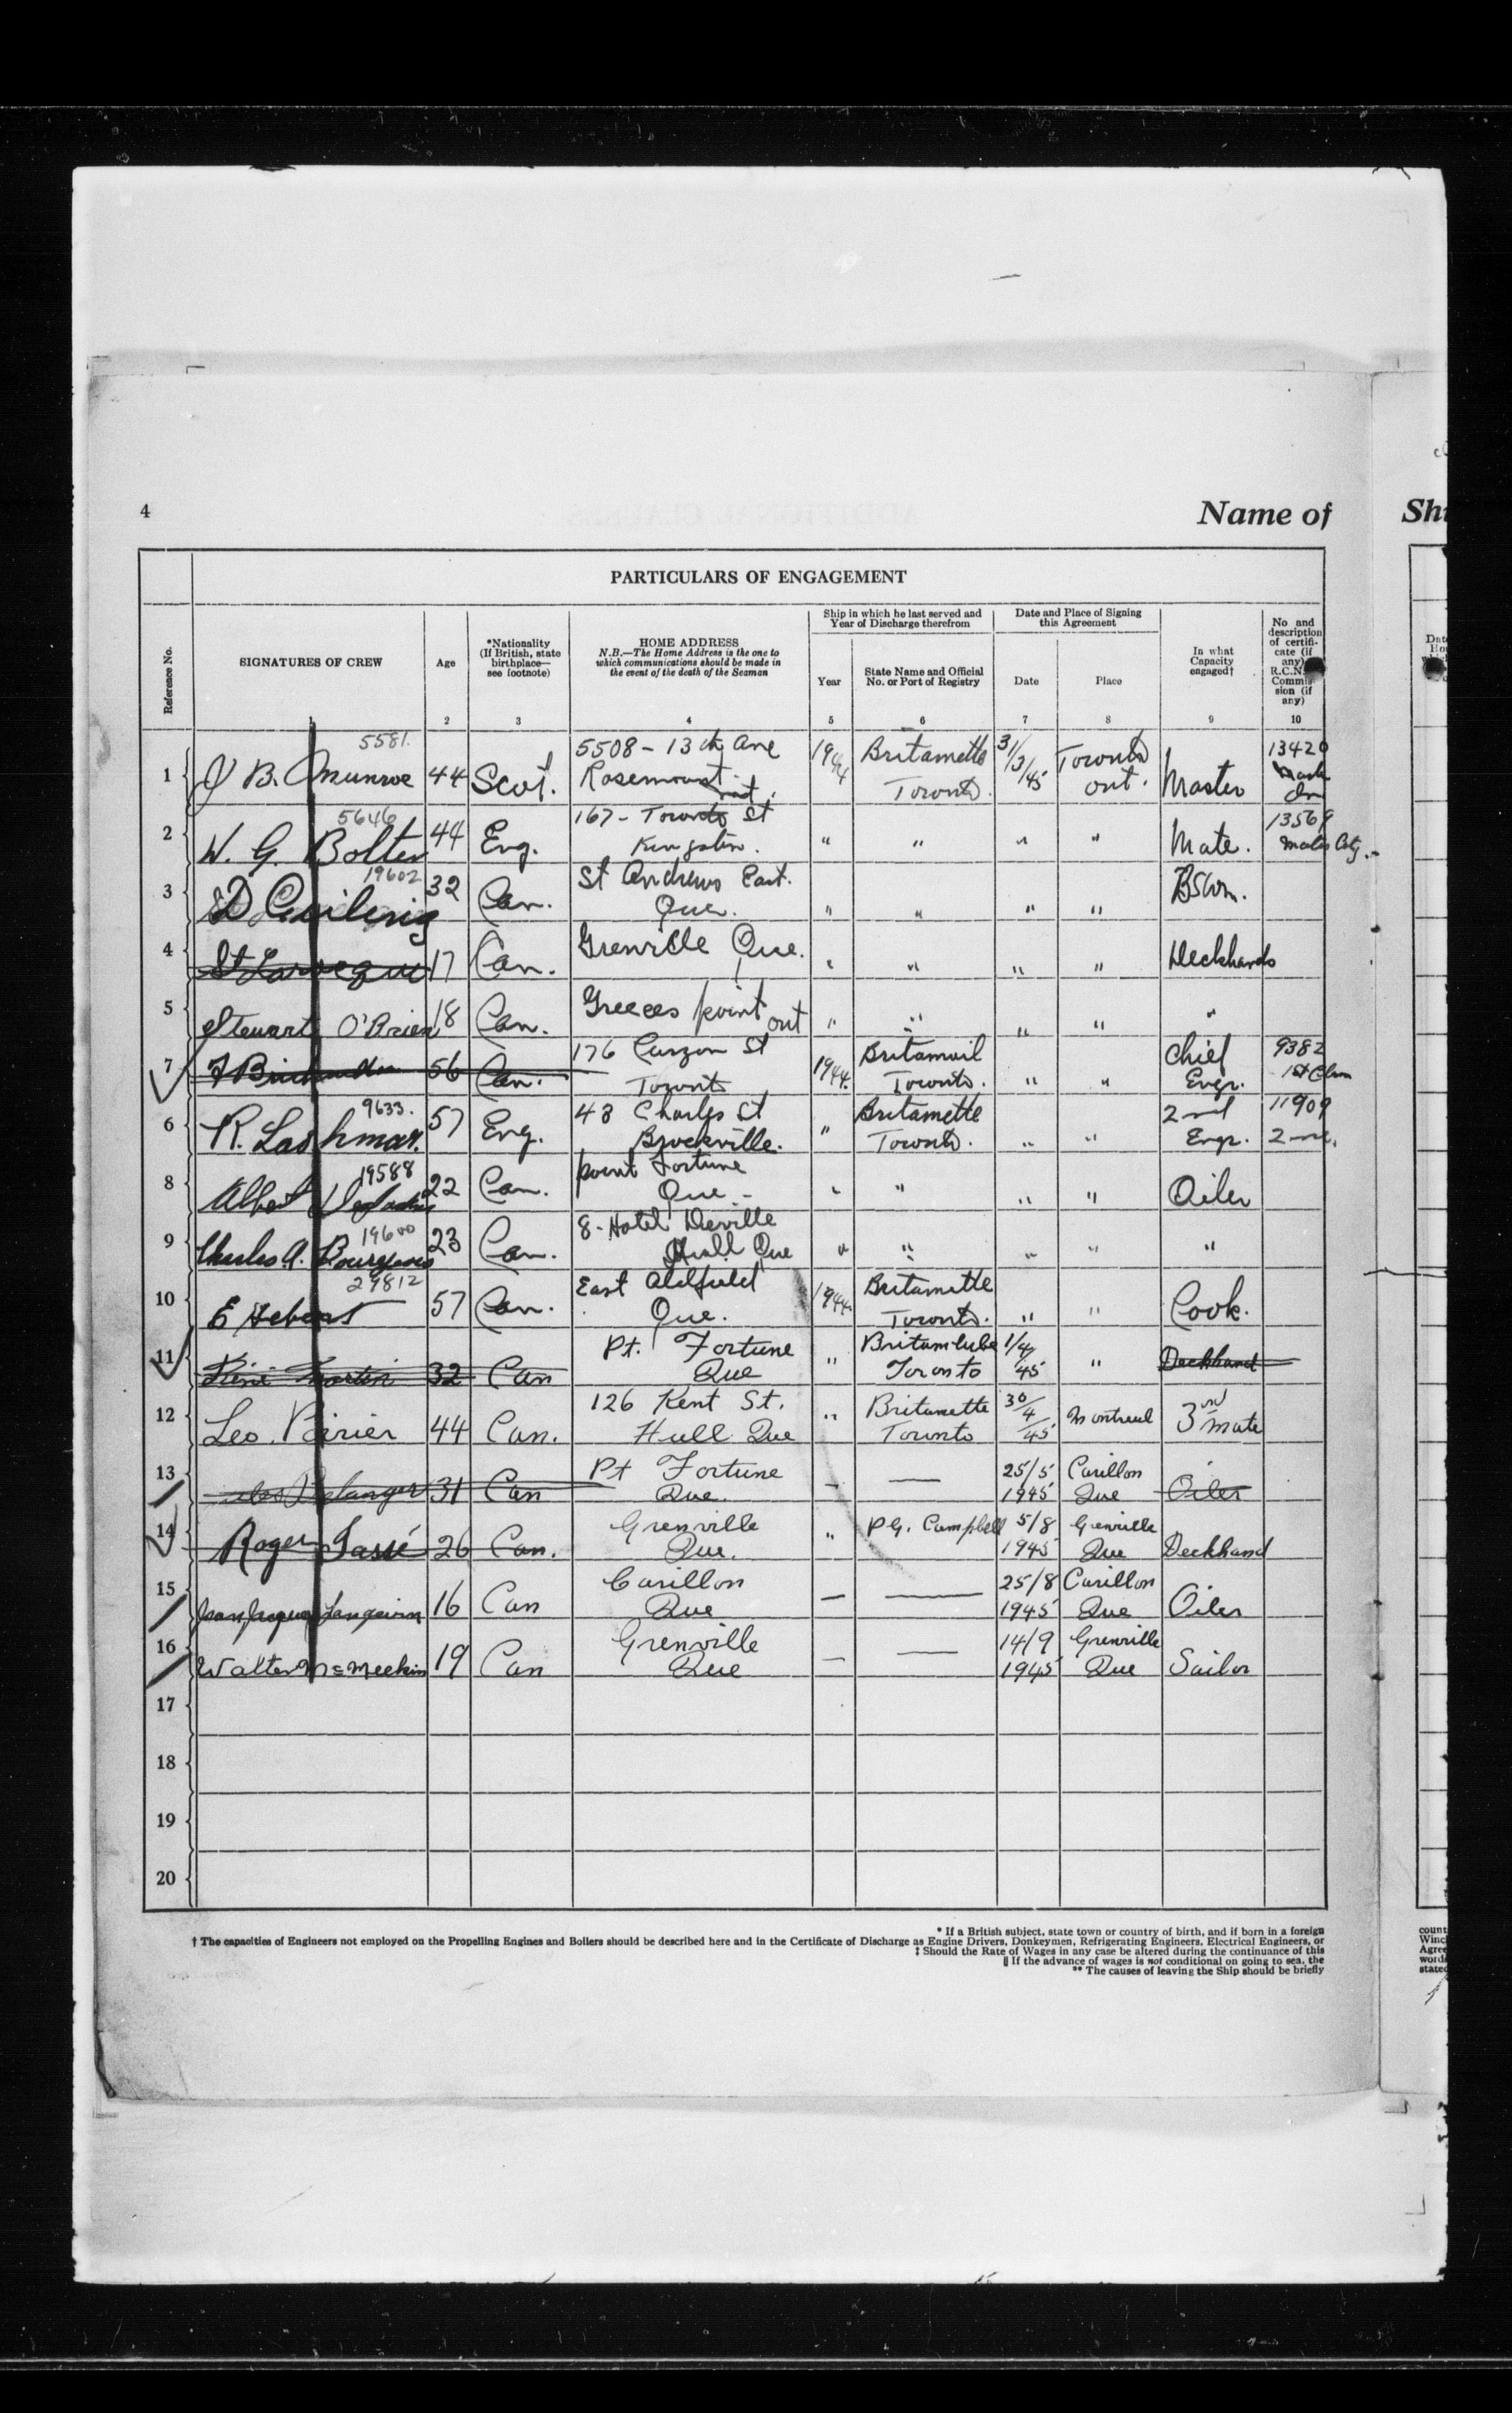 4
Name of
Shi
PARTICULARS OF ENGAGEMENT
Reference No.
SIGNATURES OF CREW
Age
*Nationality
(If British, state
birthplace—
see footnote)
HOME ADDRESS
N.B.—The Home Address is the one to
which communications should be made in
the event of the death of the Seaman
Ship in which he last served and
Year of Discharge therefrom
Year
State Name and Official
No. or Port of Registry
Date and Place of Signing
this Agreement
Date
Place
In what
Capacity
engaged†
No and
description
of certifi-
cate (if
any)
R.C.N.
Commis-
sion (if
any)
1 2 3 4 5 6 7 8 9 10
5581.
1 J B. Munroe 44 Scot. 5508 - 13th Ave Rosemount 1944 Britamette Toronto. 31/3/45 Toronto Ont. Master 13420
5646
2 W. G. Bolter 44 Eng. 167 - Toronto St Kingston. " " " " Mate. 13569 Mates Ctg.
19602
3 32 Can. St Andrews East. Que. " " " "
4 17 Can. Grenville Que. " " " " Deckhands
5 Stewart O'Brien 18 Can. Greeces point ont " " " " "
7 56 Can. 176 Curzon St Toronto 1944. Britamoil Toronto. " " Chief Engr. 9382 1st Class
9633.
6 R. Lashmar. 57 Eng. 48 Charles St Brockville. " Britamette Toronto. " " 2nd Engr. 11909
19588
8 Albert 22 Can. point Fortune Que - " " " " Oiler
19600
9 Charles A. Bourgeois 23 Can. 8 - Hotel Deville Hull Que " " " " "
29812
10 E Hebert 57 Can. East Aldfield Que. 1944. Britamette Toronto. " " Cook.
11 René Martin 32 Can Pt. Fortune Que " Britamlube Toronto 1/4/45 " Deckhand
12 Leo. Poirier 44 Can. 126 Kent St. Hull Que " Britamette Toronto 30/4/45 Montreal 3rd mate
13 Belanger 31 Can Pt Fortune Que. — — 25/5 1945 Carillon Que Oiler
14 Roger Tassé 26 Can. Grenville Que. " P.G. Campbell 5/8 1945 Grenville Que Deckhand
15 Jean Jacques Langevin 16 Can Carillon Que — — 25/8 1945 Carillon Que Oiler
16 Walter McMeekin 19 Can Grenville Que — — 14/9 1945 Grenville Que Sailor
17
18
19
20
* If a British subject, state town or country of birth, and if born in a foreign
† The capacities of Engineers not employed on the Propelling Engines and Boilers should be described here and in the Certificate of Discharge as Engine Drivers, Donkeymen, Refrigerating Engineers, Electrical Engineers, or
‡ Should the Rate of Wages in any case be altered during the continuance of this
|| If the advance of wages is not conditional on going to sea, the
** The causes of leaving the Ship should be briefly
count
Winc
Agree
words
stated